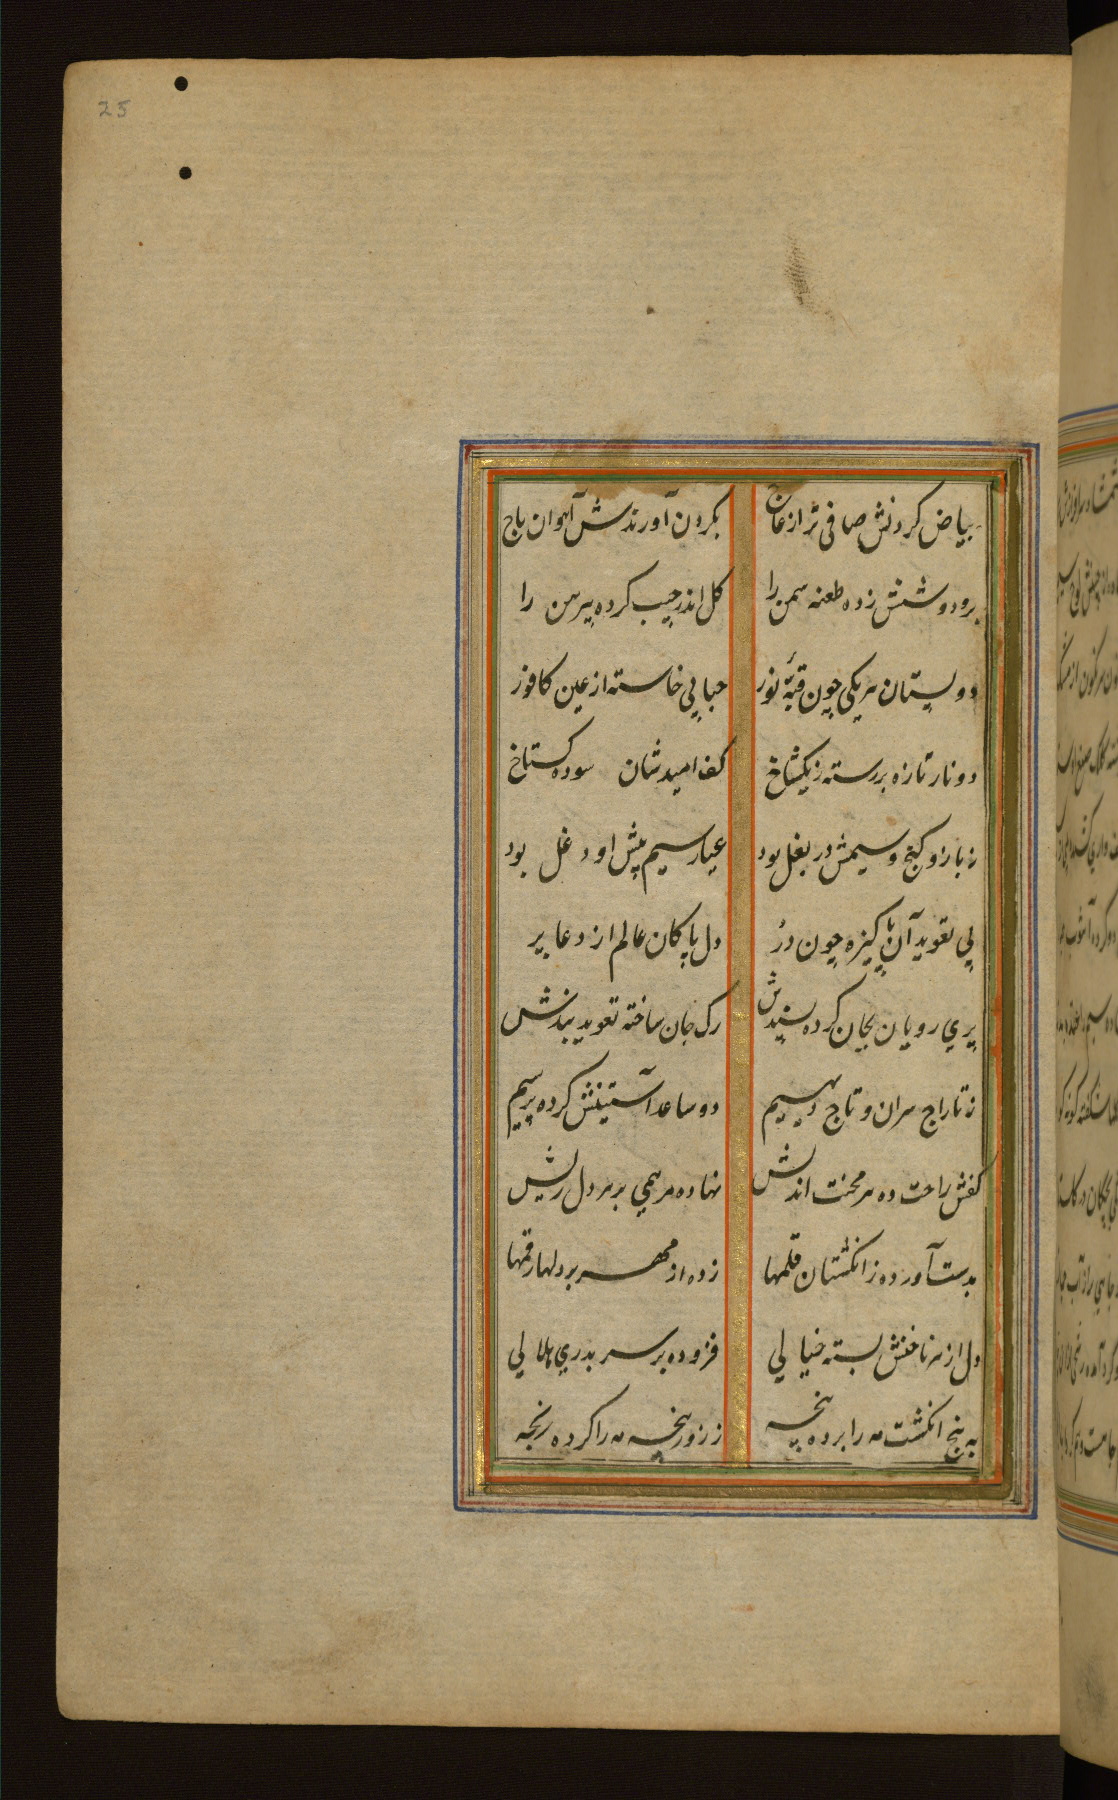 25
بیاض کردنش صافی تر از عاج بکردن آورندش آهوان باج
برو دوشش زده طعنه سمن را کل اندر جیب کرده پیرهن را
دو پستان هر یکی چون قبهٔ نور حبابی خاسته از عین کافور
دو نار تازه بر رسته ز یکشاخ کف امیدشان سوده کستاخ
ز بازو کنج و سیمش در بغل بود عیار سیم پیش او دغل بود
پی تعوید آن پاکیزه چون در دل پاکان عالم از دعا پر
پری رویان بجان کرده پسندش رک جان ساخته تعوید بندش
ز تاراج سران و تاج دیهیم دو ساعد آستینش کرده پر سیم
کفش راحت ده هر محنت اندیش نهاده مرهمی بر هر دل ریش
بدست آورده ز انکشتان قلمها زده از مهر بر دلها رقمها
دل از هر ناخنش بسته خیالی فزوده بر سر بدری هلالی
به پنج انکشت مه را برده پنجه ز زور پنجه مه را کرده رنجه